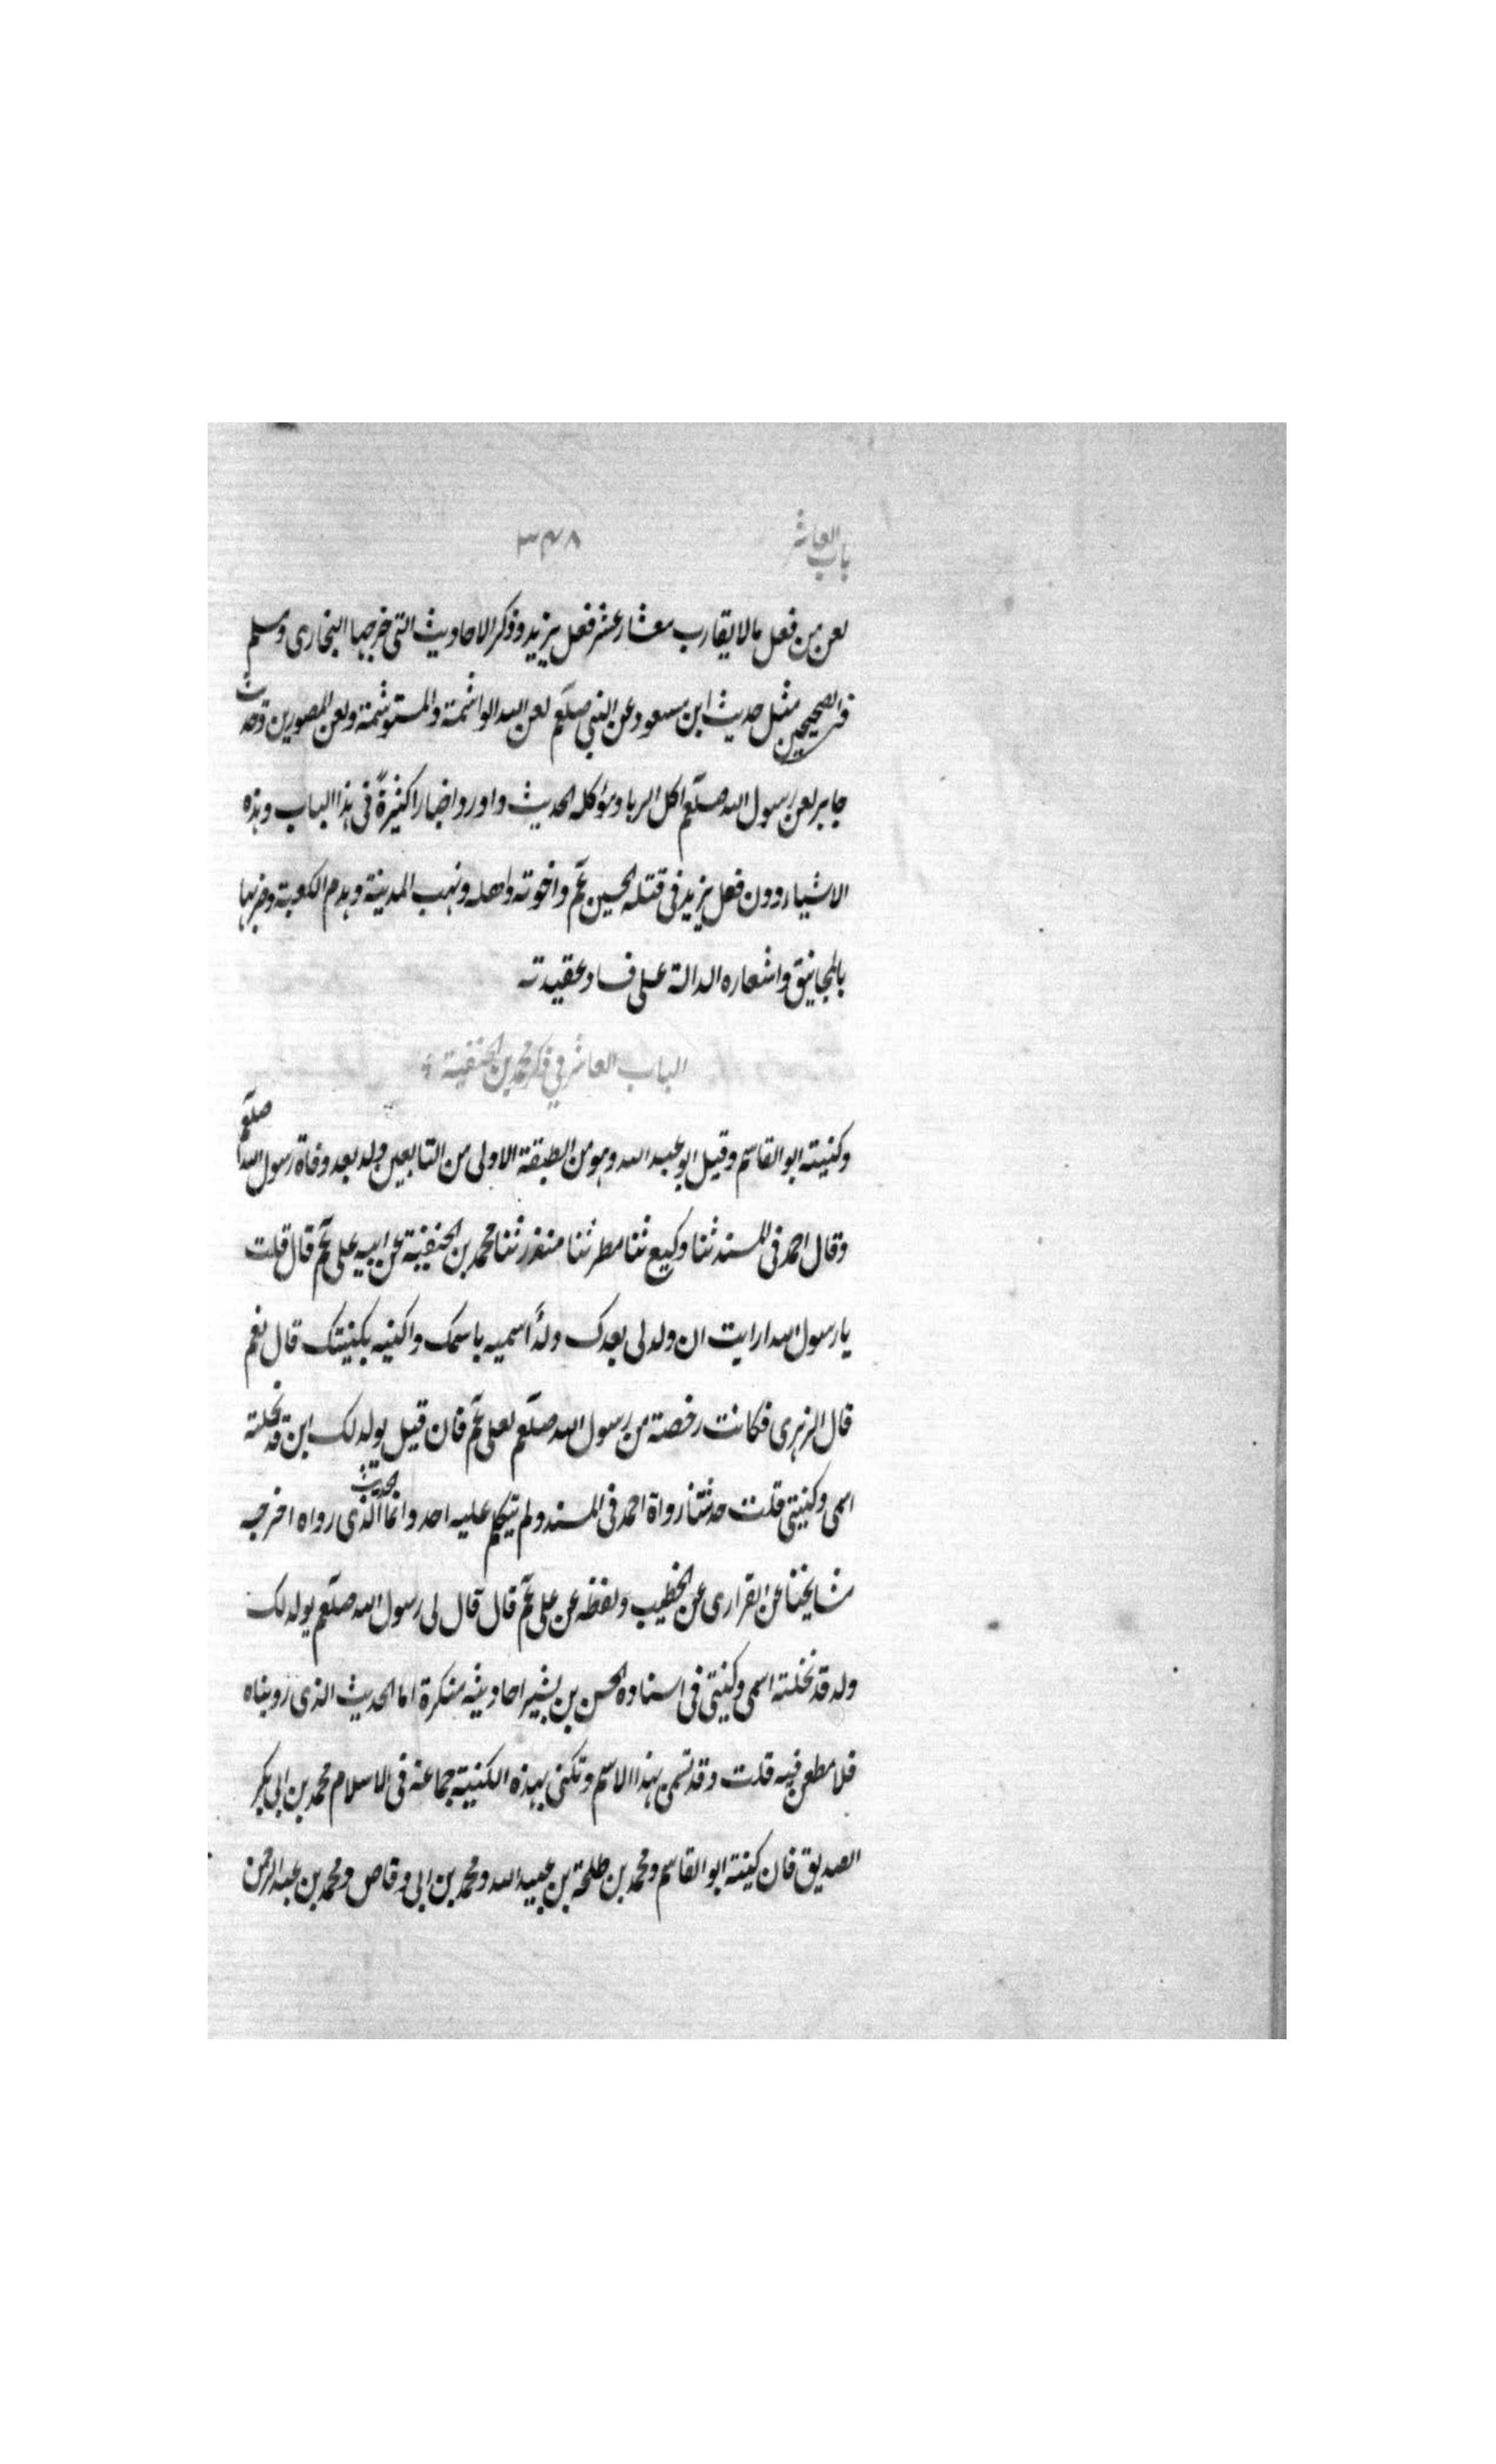 باب العاشر
٣٤٨
لعن من فعل مالا يقارب معشار عشر فعل يزيد وذكر الاحاديث التى خرجها البخارى ومسلم
فى الصحيحين مثل حديث ابن مسعود عن النبى صلعم لعن الله الواشمة والمستوشمة ولعن المصورين وحديث
جابر لعن رسول الله صلعم اكل الربا وموكله الحديث واورد اخبارا كثيرةً فى هذا الباب وهذه
الاشياء دون فعل يزيد فى قتله الحسين عم واخوته واهله ونهب المدينة وهدم الكعبة وضربها
بالمجانيق واشعاره الدالة على فساد عقيدته
الباب العاشر في ذكر محمد بن الحنفية
وكنيته ابو القاسم وقيل ابو عبد الله وهو من الطبقة الاولى من التابعين ولد بعد وفاة رسول الله صلعم
وقال احمد فى المسند ثنا وكيع ثنا مطر ثنا منذر ثنا محمد بن الحنفية عن ابيه على عم قال قلت
يا رسول الله ارايت ان ولد لى بعدك ولدًا اسميه باسمك واكنيه بكنيتك قال نعم
قال الزهرى فكانت رخصة من رسول الله صلعم لعلى عم فان قيل يولد لك ابن قد نحلته
اسمى وكنيتى قلت حدثنا رواة احمد فى المسند ولم يتكلم عليه احد وانما الحديث الذى رواه اخرجه
مشايخنا عن القرارى عن الخطيب ولفظه عن على عم قال قال لى رسول الله صلعم يولد لك
ولد قد نحلته اسمى وكنيتى فى اسناده الحسن بن بشير احاديثه منكرة اما الحديث الذى رويناه
فلا مطعن فيه قلت وقد تسمى بهذا الاسم وتكنى بهذه الكنية جماعة فى الاسلام محمد بن ابى بكر
الصديق فان كنيته ابو القاسم ومحمد بن طلحة بن عبيد الله ومحمد بن ابى وقاص ومحمد بن عبد الرحمن